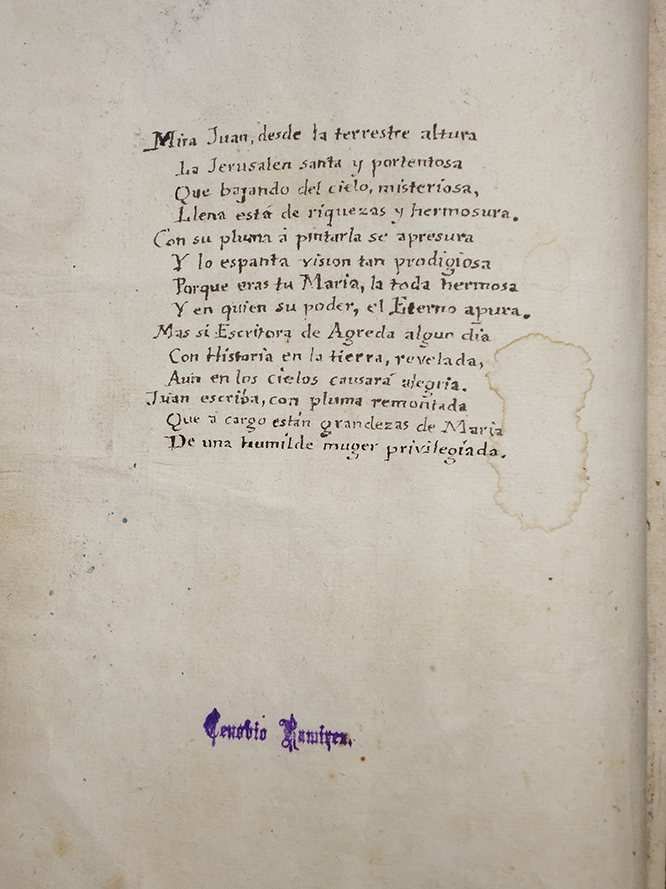 Mira Juan, desde la terrestre altura
La Jerusalen santa y portentosa
Que bajando del cielo, misteriosa,
Llena está de riquezas y hermosura.
Con su pluma á pintarla se apresura
Y lo espanta vision tan prodigiosa
Porque eras tu Maria, la toda hermosa
Y en quien su poder, el Eterno apura.
Mas si Escritora de Agreda algun dia
Con Historia en la tierra, revelada,
Aun en los cielos causará alegria.
Juan escriba, con pluma remontada
Que á cargo están grandezas de Maria
De una humilde muger privilegiada.
Cenobio Ramirez.